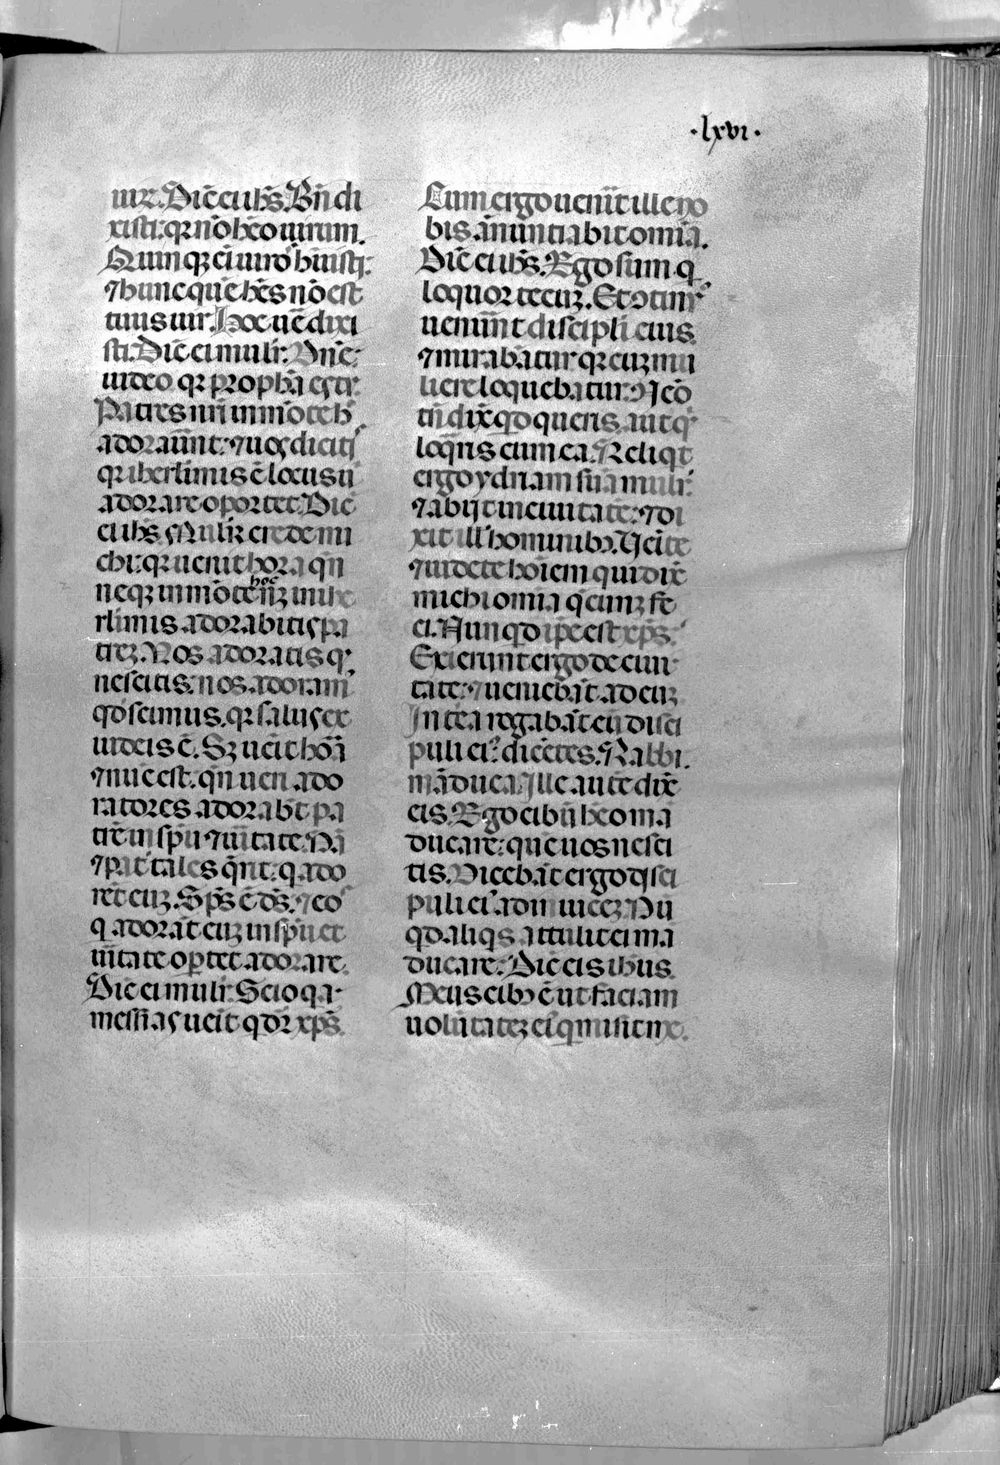 ·lxvi·
uiꝝ. Dic̄ ei ih̄s. Bn̄ di
xisti: qꝛ nō hēo uirum.
Quinqꝫ ēi uiro hūisti:
⁊ hunc quē hēs nō est
tuus uir. Hoc uē dixi
sti. Dic̄ ei muliᷣ. Dn̄e:
uideo qꝛ proph̄a es tu.
Patres nr̄i in mōte h
adoraūnt: ⁊ uos dicitis
qꝛ iherl̄imis ē locus u
adorare oportet. Dic̄
ei ih̄s. Mulir crede mi
chi: qꝛ ueniet hora qn̄
neqꝫ in mōte hoc nꝫ in ihe
rl̄imis adorabitis pa
trē. Nos adoratis qᷓ
nescitis: nos adoram
qd̄ scimus. qꝛ salus ex
iudeis ē. Sꝫ ueit hōa
⁊ nūc est. qn̄ ueri ado
ratores adorabt̄ pa
trē in sp̄u ⁊ uītate. Nā
⁊ pat̄ tales qr̄it: q ado
rēt euꝫ. Sp̄s ē ds̄. ⁊ eos
q adorāt euꝫ in sp̄u et
uītate oꝑtet adorare.
Dic̄ ei muliᷣ. Scio qa
messias ueit q dr̄ xp̄s.
Cum ergo uenīt ille no
bis ānuntiabit omīa.
Dic̄ ei ih̄s. Ego sum q
loquor tecuꝫ. Et ꝯtinᷣ
uenīnt discipli eius.
⁊ mirabātur qꝛ cuꝫ mu
liere loquebatur. Nēo
tn̄ dix̄ qd̄ queris aut qᷓ
loqr̄is cum ea. Reliqt
ergo ydriam suā muliᷣ.
⁊ abijt in ciuitatē: ⁊ di
xit ill̄ hominibꝫ. Uēite
⁊ uidete hoīem qui dix̄
michi omīa qcūqꝫ fe
ci. Nunqd ip̄e est xp̄s.
Exierunt ergo de ciui
tate: ⁊ ueniebāt ad euꝫ
Int̄ea rogabāt eū disci
puli eiꝰ dicētes. Rabbi.
māduca. Ille autē dix̄
eis. Ego cibū hēo mā
ducare: quē uos nesci
tis. Dicebāt ergo disci
puli eiꝰ ad inuicēꝫ. Nū
qd aliqs attulit ei mā
ducare. Dic̄ eis ih̄us.
Meus cibꝫ ē ut faciam
uolūtatēꝫ eiꝰ q misit me.